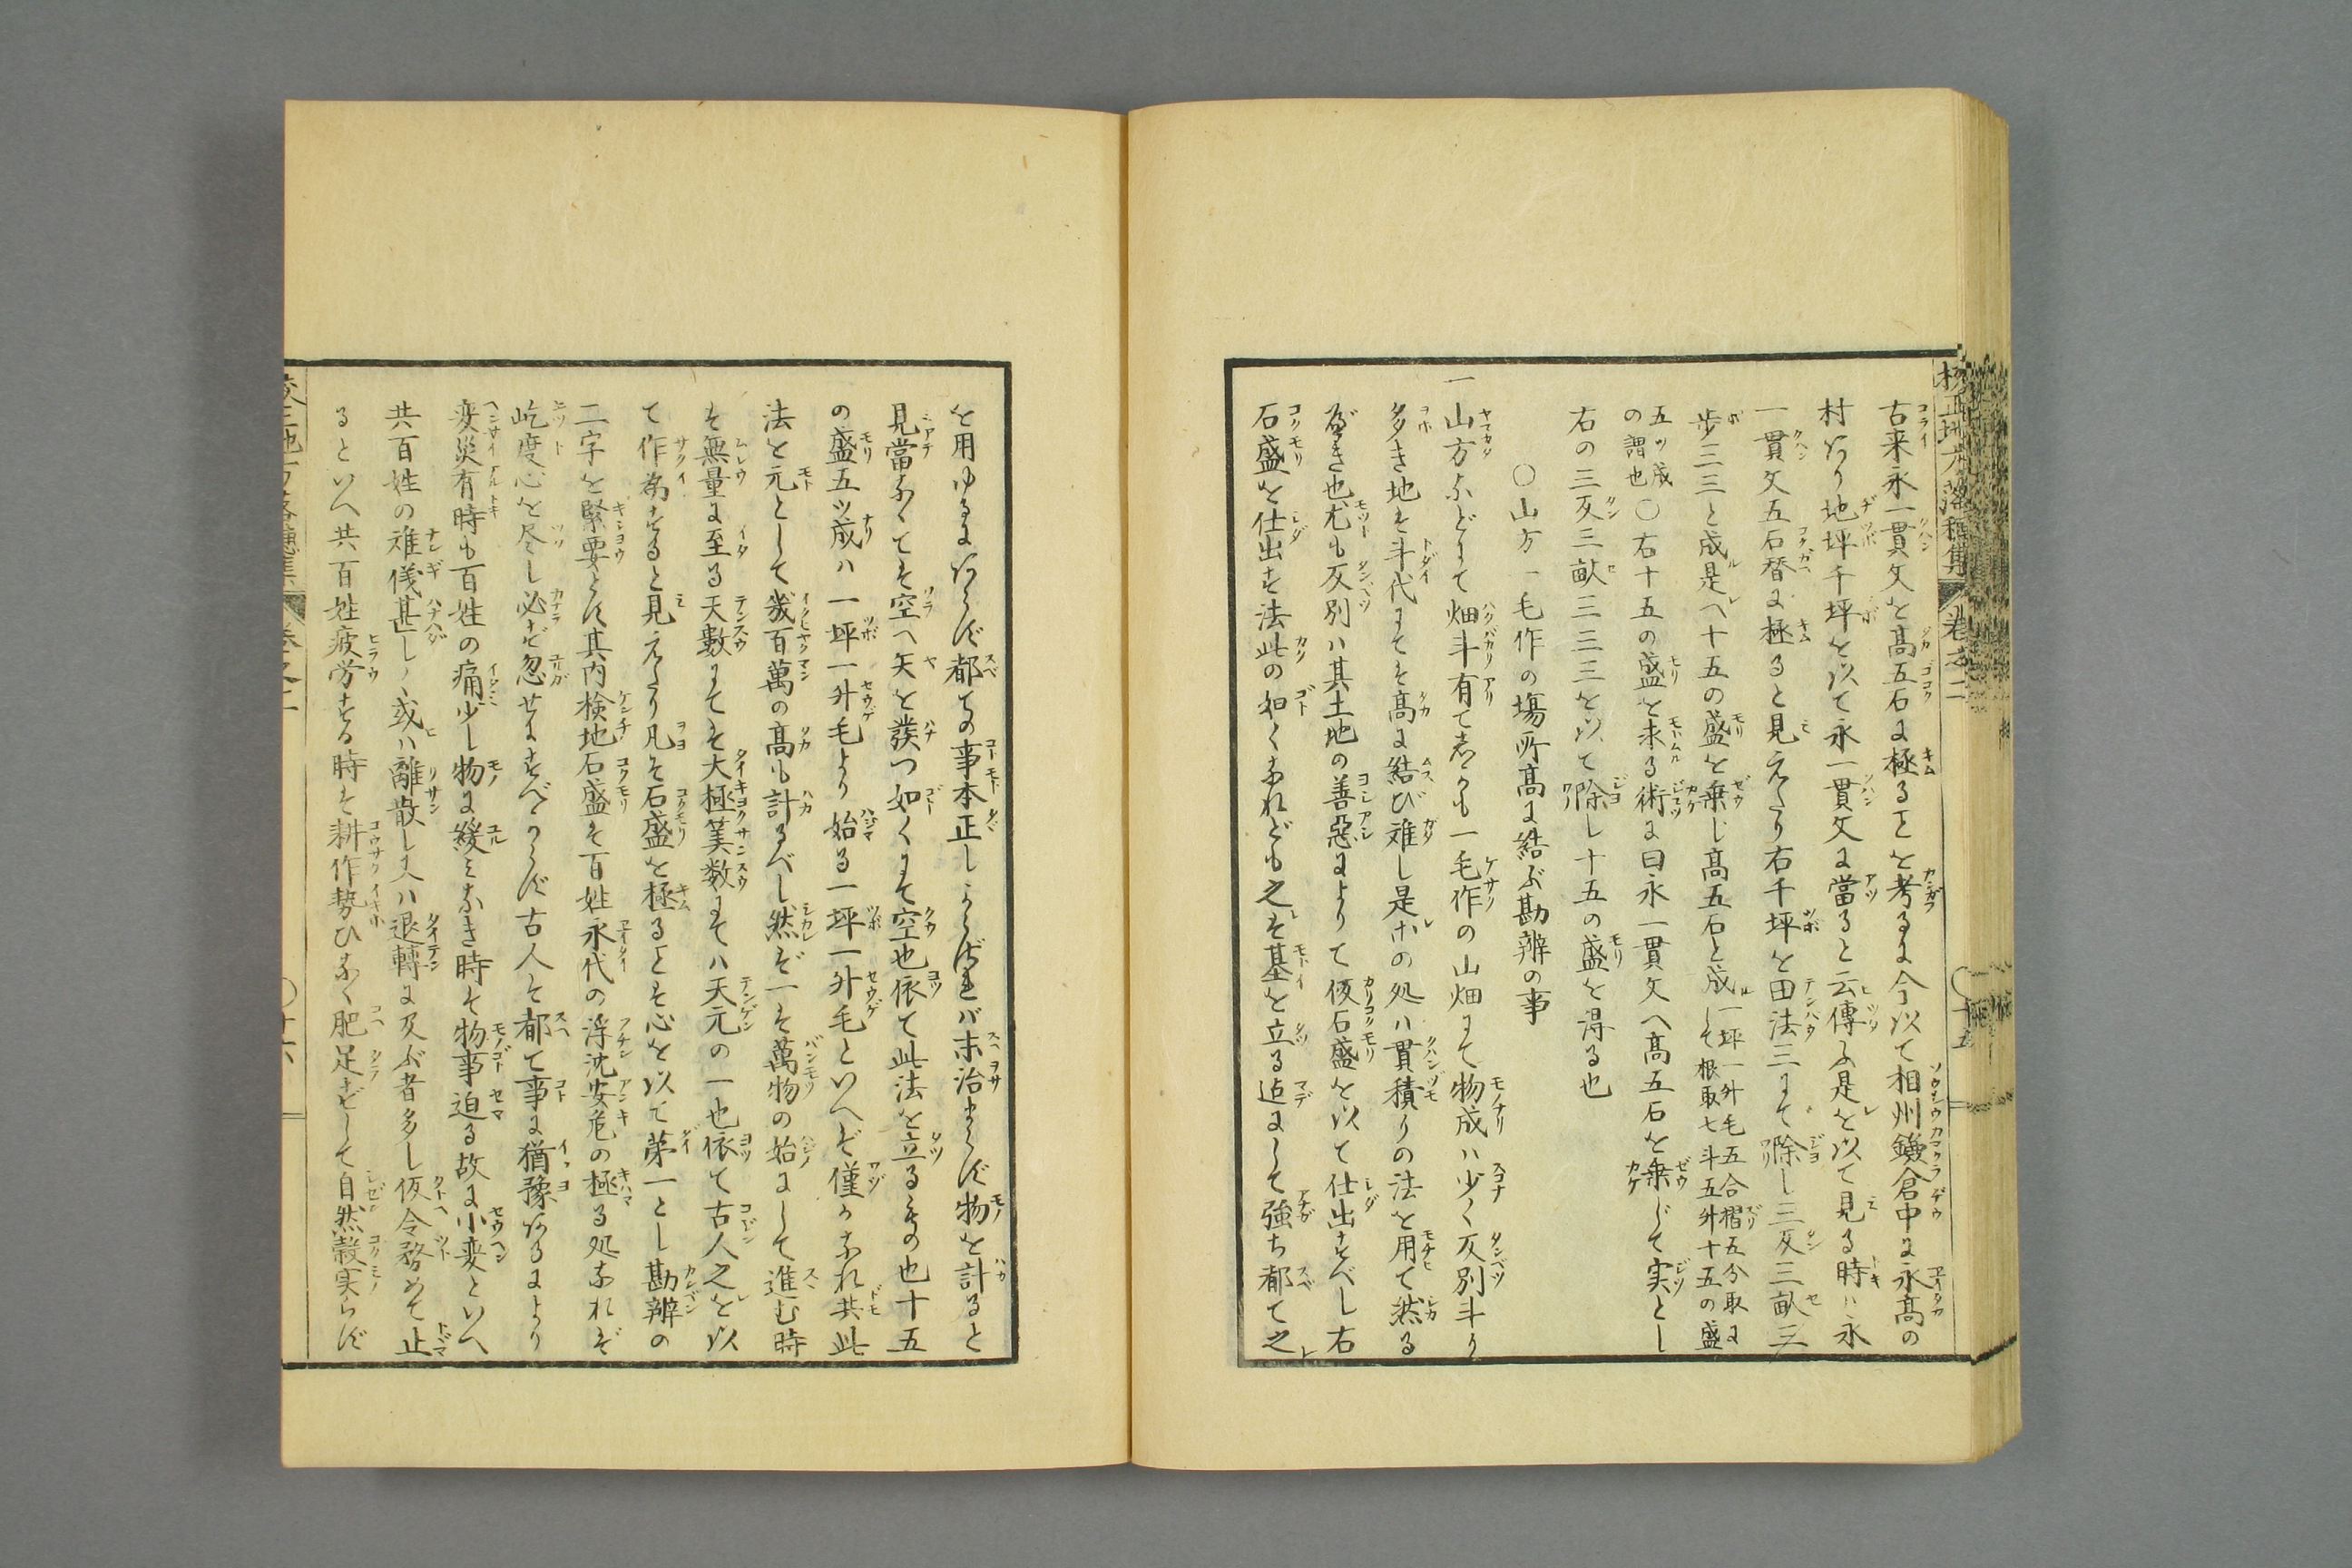 古来永一貫文を高五石に極ることを考るに今以て相州鎌倉中に永高の
村あり地坪千坪を以て永一貫文に當ると云傳ふ是を以て見る時ハ永
一貫文五石替に極ると見えたり右千坪を田法三にて除し三反三畝三
歩三三と成是へ十五の盛を乗じ高五石と成 一坪一升毛五合摺五分取に
して根取七斗五升十五の盛
五ツ成
の謂也 〇右十五の盛を求る術に曰永一貫文へ高五石を乗じて実とし
右の三反三畝三三三を以て除し十五の盛を得る也
〇山方一毛作の場所高に結ぶ勘辨の事
一山方などにて畑斗有て志かも一毛作の山畑にて物成ハ少く反別斗り
多き地を斗代にてそ高に結び難し是ホの処ハ貫積りの法を用て然る
べき也尤も反別ハ其土地の善惡によりて仮石盛を以て仕出すべし右
石盛を仕出す法此の如くなれども之を基を立る迠にして強ち都て之
を用ゆるにあらず都ての事本正しからざれバ末治まらず物を計ると
見當なくてそ空へ矢を發つ如くにて空也依て此法を立るもの也十五
の盛五ツ成ハ一坪一升毛より始る一坪一升毛といへど僅かなれ共此
法を元として幾百萬の高も計るべし然ど一そ萬物の始にして進む時
そ無量に至る天數にてそ大極筭数にてハ天元の一也依て古人之を以
て作為すると見えたり凡そ石盛を極るとそ心を以て苐一とし勘辨の
二字を緊要とす其内検地石盛そ百姓永代の浮沈安危の極る処なれど
屹度心を尽し必ず忽せにすべからず古人そ都て事に猶豫あるにより
変災有時も百姓の痛少し物に緩ミなき時そ物事迫る故に小変といへ
共百姓の難儀甚しく或ハ離散し又ハ退轉に及ぶ者多し仮令務めて止
るといへ共百姓疲労する時そ耕作勢ひなく肥足ずして自然穀実らず